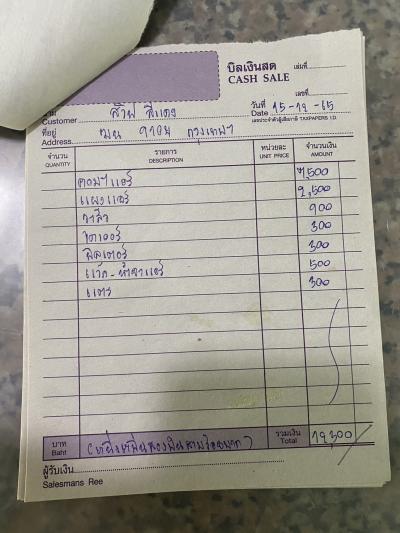 บิลเงินสด เล่มที่
CASH SALE
เลขที่
นาม
Customer
วันที่ 15-12-65
Date
เลขประจำตัวผู้เสียภาษี TAXPAYERS I.D.
ที่อยู่
Address กรุงเทพฯ
จำนวน รายการ หน่วยละ จำนวนเงิน
QUANTITY DESCRIPTION UNIT PRICE AMOUNT
คอมฯแอร์ 7,500
แผงแอร์ 2,500
วาล์ว 900
ไดเออร์ 300
ฟิลเตอร์ 300
แว๊ก-น้ำยาแอร์ 500
แตร 300
บาท (หนึ่งหมื่นสองพันสามร้อยบาท) รวมเงิน 12,300
Baht Total
ผู้รับเงิน
Salesmans Ree